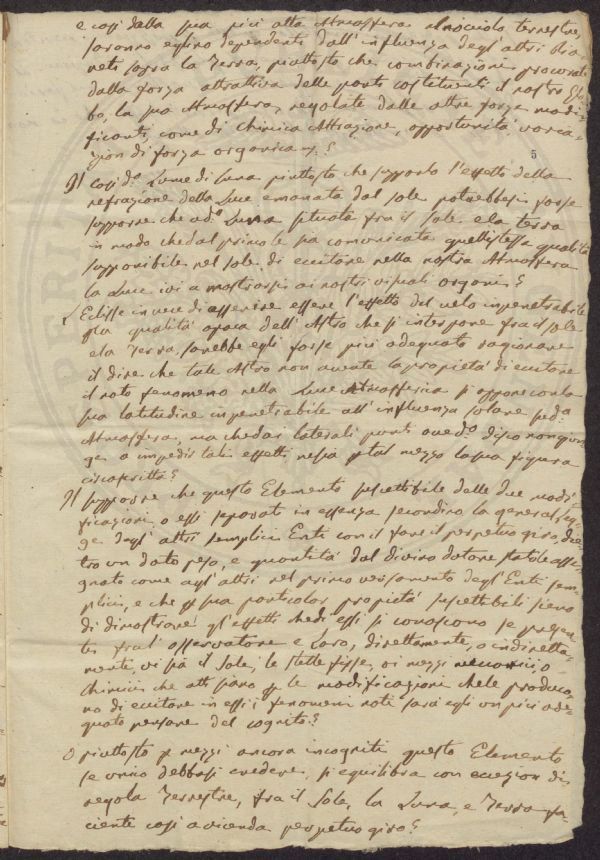 e così dalla sua più alta Atmosfera al nociolo terrestre,
saranno eglino dependenti dall'influenza degl'altri Pia
neti sopra la Terra, piuttosto che combinazione procurata
dalla forza attrattiva delle parti costituenti il nostro Glo
bo, la sua Atmosfera, regolate dalle altre forze modi
ficanti, come di Chimica Attrazione, opportunità, varia
zion di forza organica ?
5
Il così d.º Lume di Luna piuttosto che supporlo l'effetto della
refrazione della Luce emanata dal sole potrebbesi forse
supporre che ad.ª Luna situata fra il sole e la terra
in modo che dal primo le sia comunicata quell'istessa qualità
supponibile nel sole di eccitare nella nostra Atmosfera
la Luce ivi a mostrarsi ai nostri visuali organi?
L'Eclisse in vece di asserire essere l'effetto del velo impenetrabile
p la qualità opaca dell'Astro che si interpone fra il sole
e la Terra, sarebbe egli forse più adequato ragionare
il dire che tale Astro non avente la propietà di eccitare
il noto fenomeno nella Luce Atmosferica si oppone con la
sua latitudine impenetrabile all'influenza solare s ped.ª
Atmosfera, ma che dai laterali punti oved.º disco non giun
ge a impedir tali effetti ne sia p tal mezzo la sua figura
circoscritta?
Il supporre che questo Elemento suscettibile delle due modi
ficazioni, o essi separati in essenza secondino la general Leg
ge degl'altri semplici Enti con il fare il perpetuo giro, den
tro un dato peso, e quantità dal divino datore statole asse
gnato come agl'altri nel primo versamento degl'Enti sem
plici, e che p sua particolar propietà suscettibili sieno
di dimostrare gl'effetti che di essi si conoscono se presen
tes fra l'osservatore e Loro, direttamente, o indiretta
mente, vi sia il Sole, le stelle fisse, o i mezzi meccanici o
Chimici che atti siano p le modificazioni che le produco
no di eccitare in essi i fenomeni noti sarà egli un più ade
quato pensare del cognito?
O piuttosto p mezzi ancora incogniti questo Elemento
se unico debbasi credere, si equilibra con eccezion di
regola Terrestre, fra il Sole, la Luna, e Terra fa
ciente così a vicenda perpetuo giro?